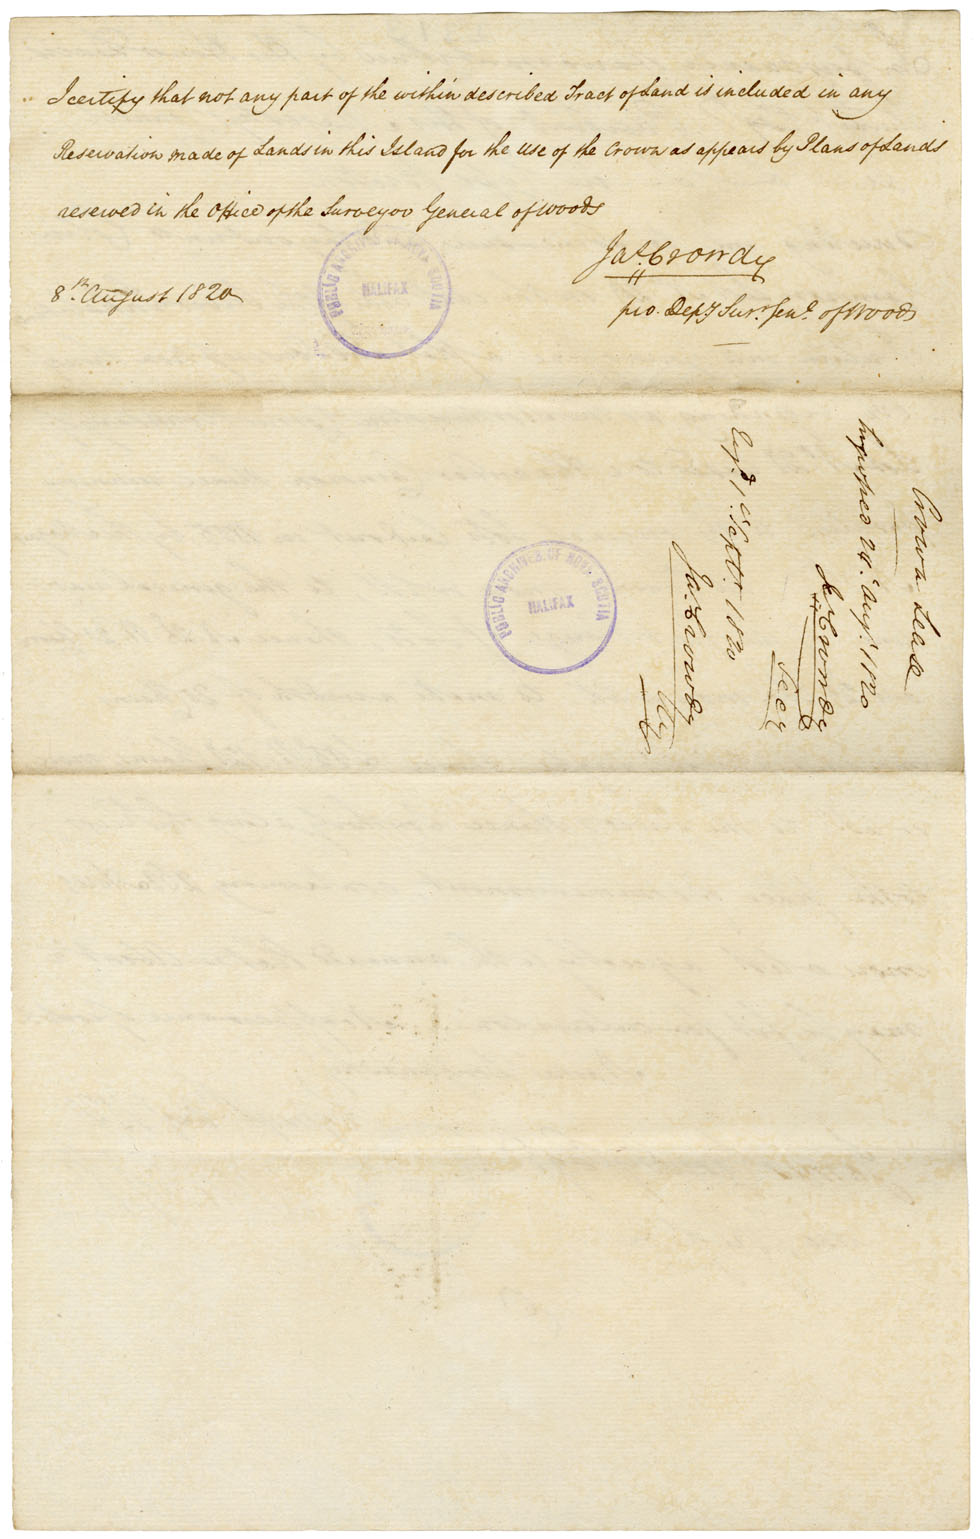 I certify that not any part of the within described Tract of Land is included in any
Reservation made of Lands in this Island for the use of the Crown as appears by Plans of Lands
reserved in the Office of the Surveyor General of Woods
Jas. Crowdy
pro. Depy Surr. Genl. of Woods
8th. August 1820
PUBLIC ARCHIVES OF NOVA SCOTIA
HALIFAX
Crown Lease
24. Augt. 1820
Js Crowdy
Secy
PUBLIC ARCHIVES OF NOVA SCOTIA
HALIFAX
1st Septr. 1820
Jas. Crowdy